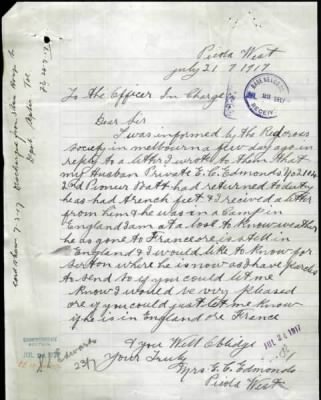 Piesta West
July 21 7 1917
To the Officer In Charge
Dear Sir
I was informed by the Redcross
society in melbourne a few day ago in
reply to a letter I wrote to them that
my Husban Private E. C. Edmonds No 2104
2nd Pioneer Batt had returned to duty
he has had trench feet & I received a letter
from him & he was in a Camp in
England I am at a loot to Know weather
he as gone to France ore is still in
England & I would like to Know for
serton where he is now as I have parcels
to send so if you could let me
Know I would be very pleased
ore if you could just let me know
if he is in England ore France
& you Will Oblidge
Your Truly
Mrs E. C. Edmonds
Piesta West
BASE RECORDS
RECEIVED
JUL 24 1917
Edwards
23/7